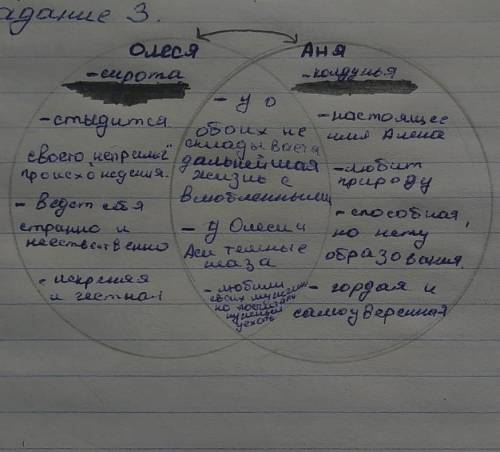 адание 3.
Олеся
Аня
- сирота
- колдунья
- стыдится
своего "непрямо"
происхождения.
- Ведет себя
странно и
неественно
- искреняя
и честная
- у о
обоих не
складывается
дальнейшая
жизнь с
влюбленными
- у Олеси и
Аси темные
глаза
- любили
своих мужчин
но
уехать
- настоящее
имя Алена
- любит
природу
- способная,
но нету
образования.
- гордая и
самоуверенная